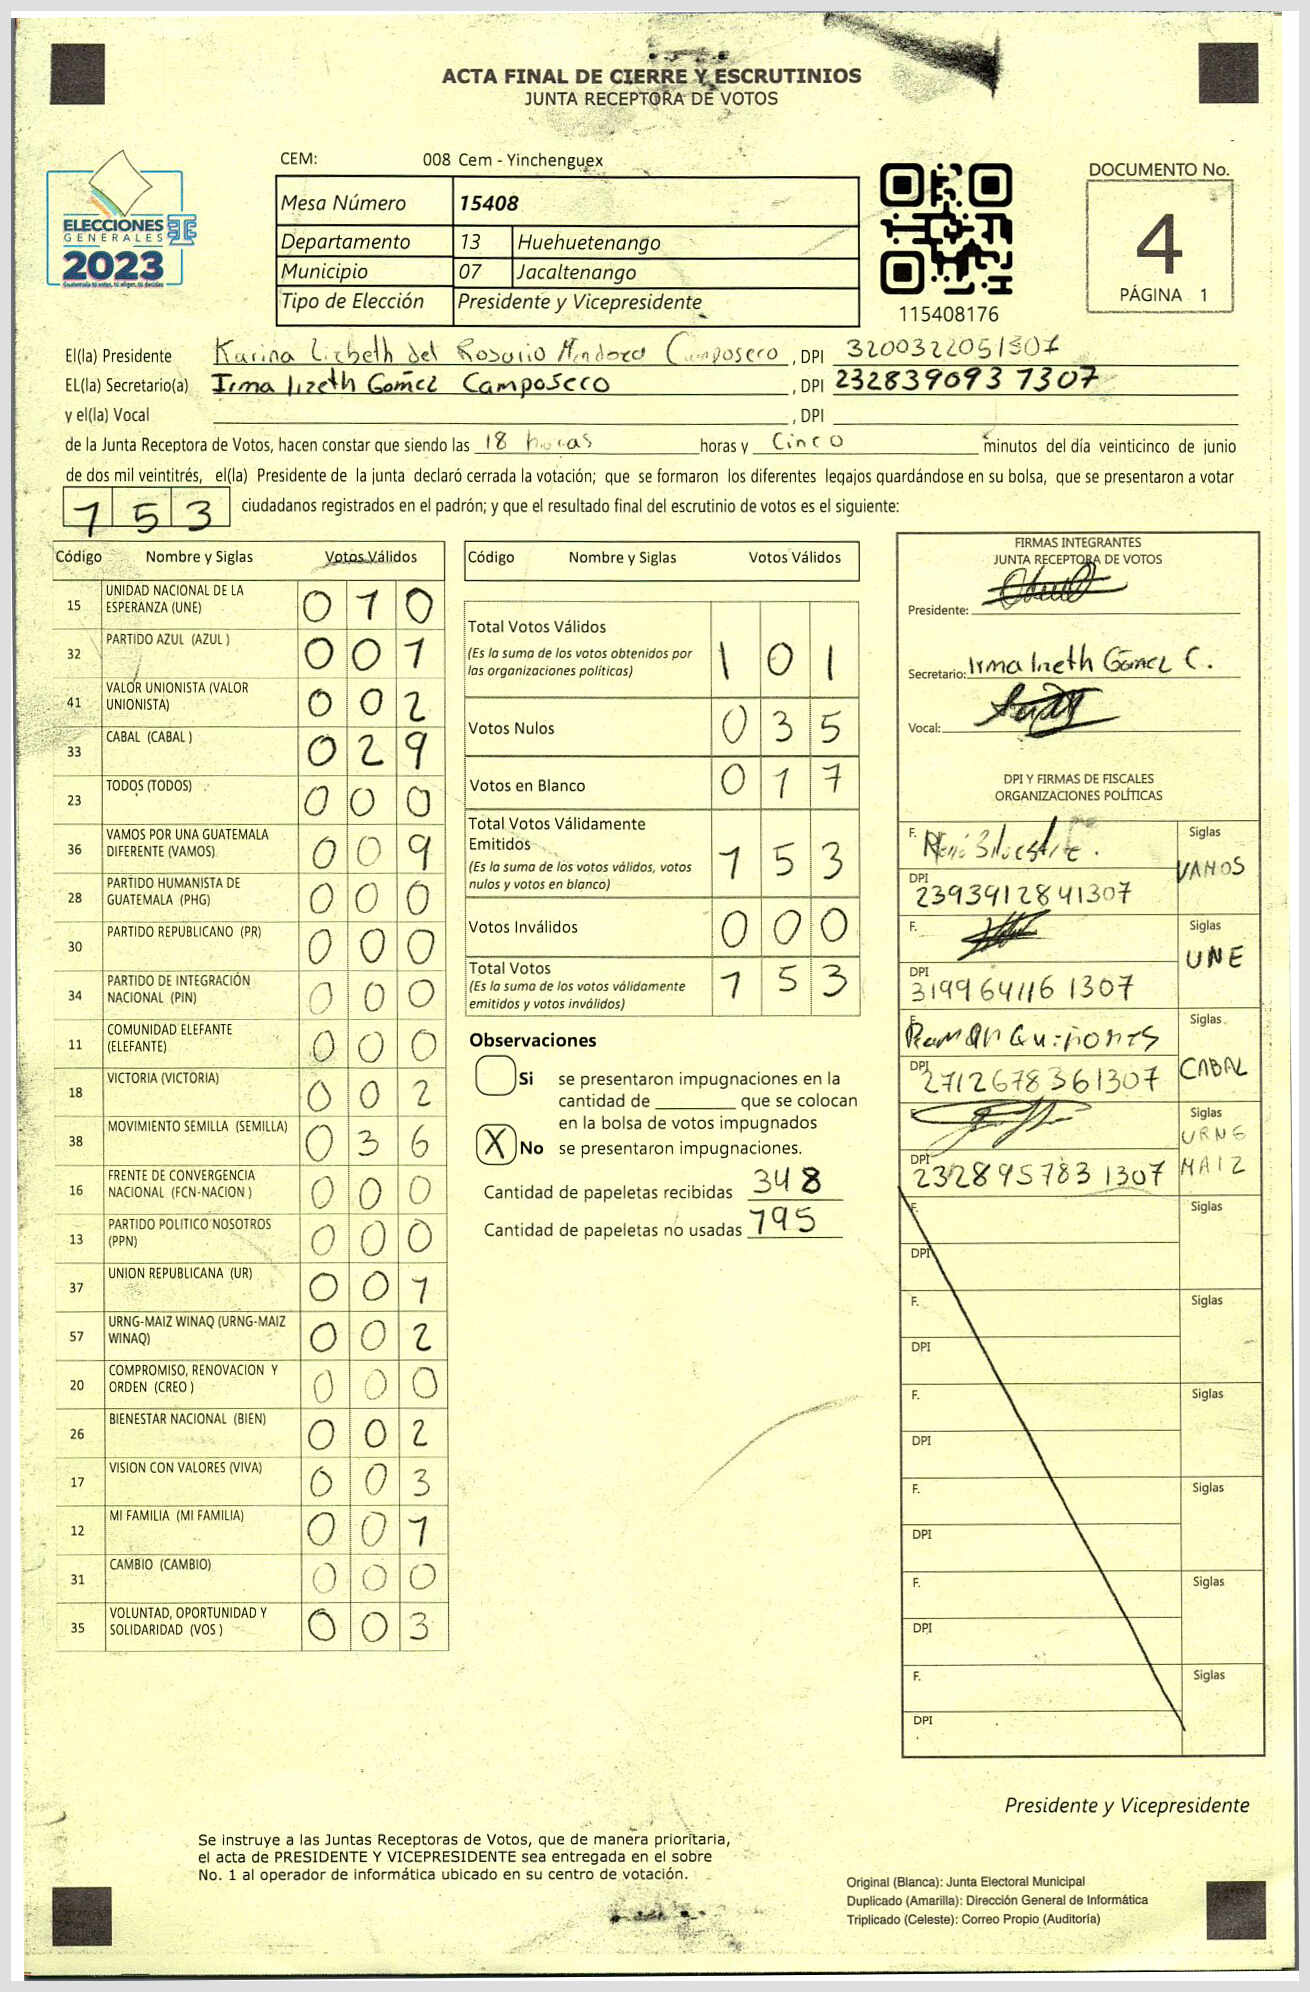 ACTA FINAL DE CIERRE Y ESCRUTINIOS
JUNTA RECEPTORA DE VOTOS
CEM: 008 Cem - Yinchenguex
ELECCIONES
GENERALES
2023
Mesa Número 15408
Departamento 13 Huehuetenango
Municipio 07 Jacaltenango
Tipo de Elección Presidente y Vicepresidente
115408176
DOCUMENTO No.
4
PÁGINA 1
El(la) Presidente Karina Lizbeth del Rosario Mendoza Camposeco, DPI 3200322051307
EL(la) Secretario(a) Irma lizeth Gómez Camposeco, DPI 2328390931307
y el(la) Vocal , DPI
de la Junta Receptora de Votos, hacen constar que siendo las 18 horas horas y Cinco minutos del día veinticinco de junio
de dos mil veintitrés, el(la) Presidente de la junta declaró cerrada la votación; que se formaron los diferentes legajos guardándose en su bolsa, que se presentaron a votar
153 ciudadanos registrados en el padrón; y que el resultado final del escrutinio de votos es el siguiente:
Código Nombre y Siglas Votos Válidos
15 UNIDAD NACIONAL DE LA ESPERANZA (UNE) 010
32 PARTIDO AZUL (AZUL ) 001
41 VALOR UNIONISTA (VALOR UNIONISTA) 002
33 CABAL (CABAL ) 029
23 TODOS (TODOS) 000
36 VAMOS POR UNA GUATEMALA DIFERENTE (VAMOS) 009
28 PARTIDO HUMANISTA DE GUATEMALA (PHG) 000
30 PARTIDO REPUBLICANO (PR) 000
34 PARTIDO DE INTEGRACIÓN NACIONAL (PIN) 000
11 COMUNIDAD ELEFANTE (ELEFANTE) 000
18 VICTORIA (VICTORIA) 002
38 MOVIMIENTO SEMILLA (SEMILLA) 036
16 FRENTE DE CONVERGENCIA NACIONAL (FCN-NACION ) 000
13 PARTIDO POLITICO NOSOTROS (PPN) 000
37 UNION REPUBLICANA (UR) 001
57 URNG-MAIZ WINAQ (URNG-MAIZ WINAQ) 002
20 COMPROMISO, RENOVACION Y ORDEN (CREO ) 000
26 BIENESTAR NACIONAL (BIEN) 002
17 VISION CON VALORES (VIVA) 003
12 MI FAMILIA (MI FAMILIA) 001
31 CAMBIO (CAMBIO) 000
35 VOLUNTAD, OPORTUNIDAD Y SOLIDARIDAD (VOS ) 003
Código Nombre y Siglas Votos Válidos
Total Votos Válidos 101
(Es la suma de los votos obtenidos por
las organizaciones políticas)
Votos Nulos 035
Votos en Blanco 017
Total Votos Válidamente
Emitidos 153
(Es la suma de los votos válidos, votos
nulos y votos en blanco)
Votos Inválidos 000
Total Votos 153
(Es la suma de los votos válidamente
emitidos y votos inválidos)
Observaciones
Si se presentaron impugnaciones en la
cantidad de ________ que se colocan
en la bolsa de votos impugnados
X No se presentaron impugnaciones.
Cantidad de papeletas recibidas 348
Cantidad de papeletas no usadas 195
FIRMAS INTEGRANTES
JUNTA RECEPTORA DE VOTOS
Presidente:
Secretario: Irma lizeth Gómez C.
Vocal:
DPI Y FIRMAS DE FISCALES
ORGANIZACIONES POLÍTICAS
F. Siglas
VAMOS
DPI 2393912841307
F. Siglas
UNE
DPI 3199641161307
F. Ramón Quiñones Siglas
CABAL
DPI 2712678361307
F. Siglas
URNG
MAIZ
DPI 2328957831307
F. Siglas
DPI
F. Siglas
DPI
F. Siglas
DPI
F. Siglas
DPI
F. Siglas
DPI
F. Siglas
DPI
Presidente y Vicepresidente
Se instruye a las Juntas Receptoras de Votos, que de manera prioritaria,
el acta de PRESIDENTE Y VICEPRESIDENTE sea entregada en el sobre
No. 1 al operador de informática ubicado en su centro de votación.
Original (Blanca): Junta Electoral Municipal
Duplicado (Amarilla): Dirección General de Informática
Triplicado (Celeste): Correo Propio (Auditoría)